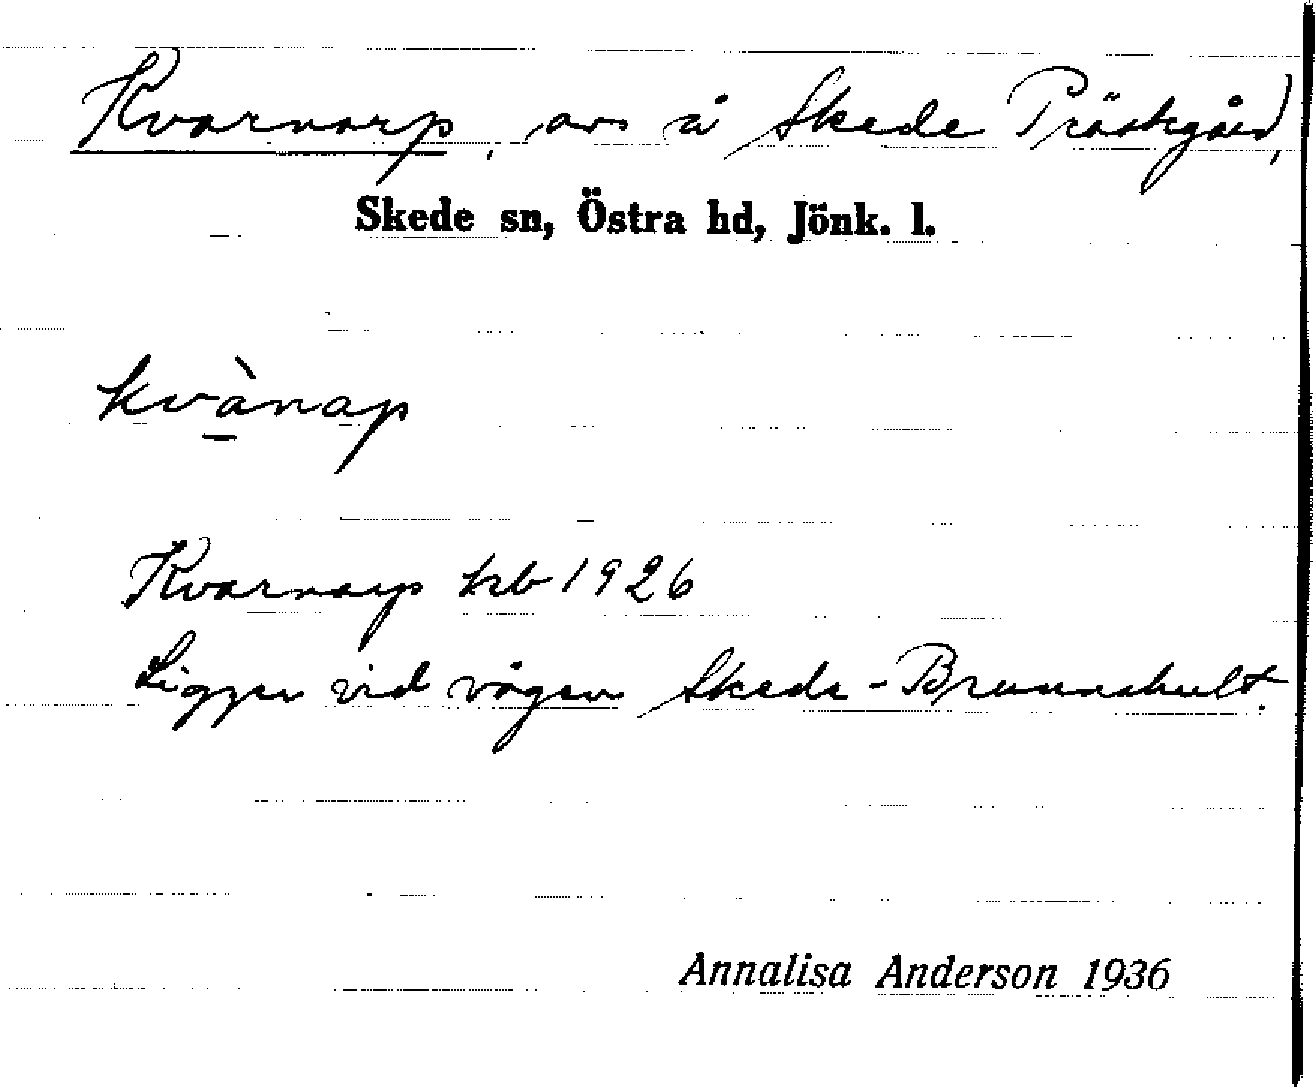 Kvarnarp, avs å Skede Prästgård,
Skede sn, Östra hd, Jönk. l.
kvànap
Kvarnarp hfb 1926
Ligger vid vägen Skede-Brunnshult.
Annalisa Anderson 1936